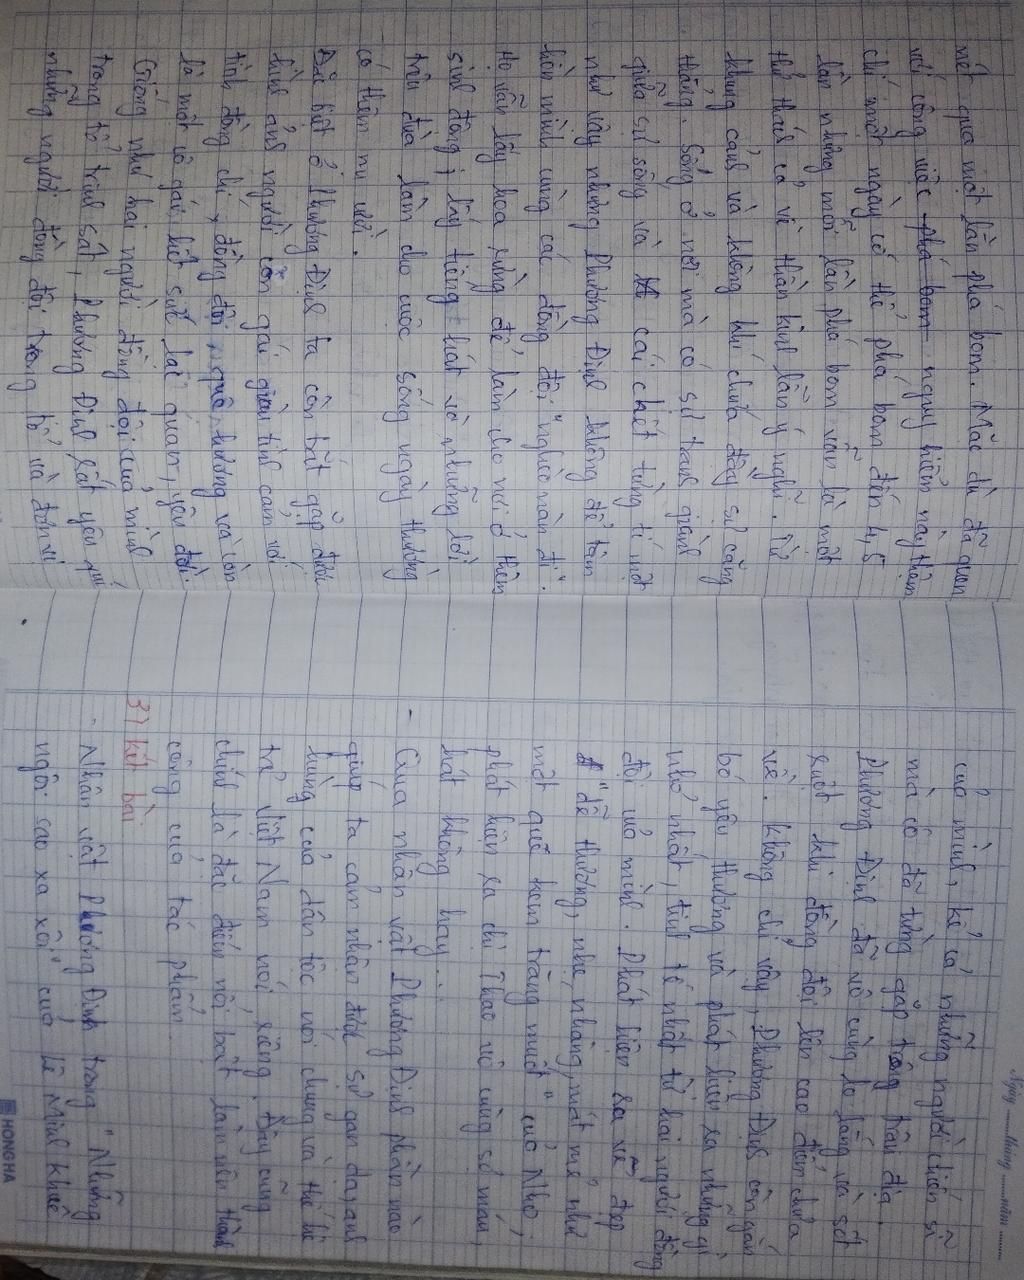 một qua một lần phá bom. Mặc dù đã quen
với công việc phá bom nguy hiểm này, thậm
chí một ngày có thể phá bom đến 4, 5
lần nhưng mỗi lần phá bom vẫn là một
thử thách cả về thần kinh lẫn ý nghĩ. Từ
khung cảnh và không khí chứa đầy sự căng
thẳng. Sống ở nơi mà có sự tranh giành
giữa sự sống và cái chết từng tí một
như vậy nhưng Phương Định không để tâm
hồn mình cùng các đồng đội "nghèo nàn đi".
Họ vẫn lấy hoa rừng để làm cho nơi ở thêm
sinh động, lấy tiếng hát và những lời
trêu đùa làm cho cuộc sống ngày thường
có thêm niềm vui.
Đặc biệt ở Phương Định ta còn bắt gặp được
hình ảnh người con gái giàu tình cảm với
tình đồng chí, đồng đội, quê hương và còn
là một cô gái hết sức lạc quan, yêu đời.
Giống như hai người đồng đội của mình
trong tổ trinh sát, Phương Định rất yêu quí
những người đồng đội trong tổ và đơn vị
Ngày ........ tháng ........ năm ........
của mình, kể cả những người chiến sĩ
mà cô đã từng gặp trong trận địa.
Phương Định đã vô cùng lo lắng và sốt
ruột khi đồng đội lên cao điểm chưa
về. Không chỉ vậy, Phương Định còn gắn
bó yêu thương và phát hiện ra những gì
nhỏ nhất, tinh tế nhất từ hai người đồng
đội của mình. Phát hiện ra vẻ đẹp
"dễ thương, nhẹ nhàng, mát mẻ như
một que kem trắng mướt" của Nho,
phát hiện ra chị Thao vô cùng sợ máu,
hát không hay...
- Qua nhân vật Phương Định phần nào
giúp ta cảm nhận được sự gan dạ, anh
hùng của dân tộc nói chung và thế hệ
trẻ Việt Nam nói riêng. Đây cũng
chính là đặc điểm nổi bật làm nên thành
công của tác phẩm.
3) Kết bài
- Nhân vật Phương Định trong "Những
ngôi sao xa xôi" của Lê Minh Khuê
HONG HA